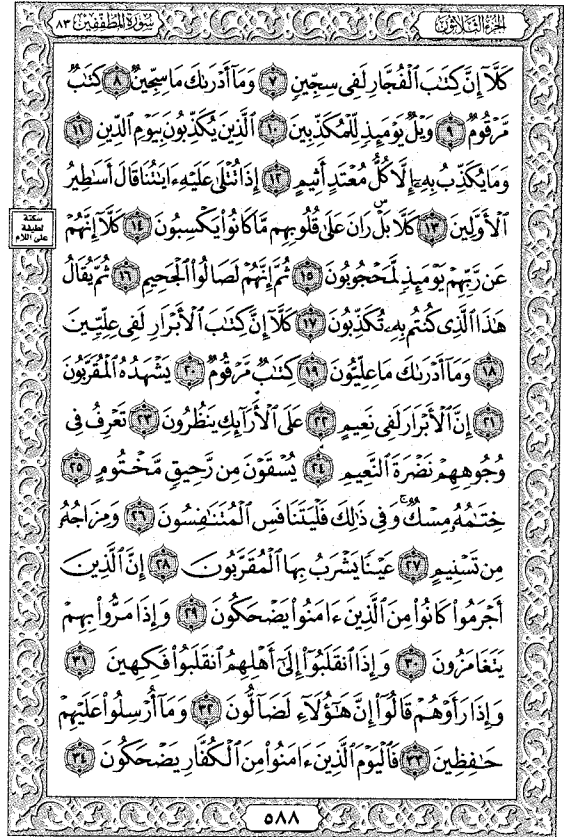 سُورَةُ المُطَفِّفِينَ ٨٣
الجُزْءُ الثَّلَاثُونَ
كَلَّآ إِنَّ كِتَٰبَ ٱلْفُجَّارِ لَفِى سِجِّينٍ ٧ وَمَآ أَدْرَىٰكَ مَا سِجِّينٌ ٨ كِتَٰبٌ
مَّرْقُومٌ ٩ وَيْلٌ يَوْمَئِذٍ لِّلْمُكَذِّبِينَ ١٠ ٱلَّذِينَ يُكَذِّبُونَ بِيَوْمِ ٱلدِّينِ ١١
وَمَا يُكَذِّبُ بِهِۦٓ إِلَّا كُلُّ مُعْتَدٍ أَثِيمٍ ١٢ إِذَا تُتْلَىٰ عَلَيْهِ ءَايَٰتُنَا قَالَ أَسَٰطِيرُ
ٱلْأَوَّلِينَ ١٣ كَلَّا ۖ بَلْ ۜ رَانَ عَلَىٰ قُلُوبِهِم مَّا كَانُوا۟ يَكْسِبُونَ ١٤ كَلَّآ إِنَّهُمْ
سكتة
لطيفة
على اللام
عَن رَّبِّهِمْ يَوْمَئِذٍ لَّمَحْجُوبُونَ ١٥ ثُمَّ إِنَّهُمْ لَصَالُوا۟ ٱلْجَحِيمِ ١٦ ثُمَّ يُقَالُ
هَٰذَا ٱلَّذِى كُنتُم بِهِۦ تُكَذِّبُونَ ١٧ كَلَّآ إِنَّ كِتَٰبَ ٱلْأَبْرَارِ لَفِى عِلِّيِّينَ
١٨ وَمَآ أَدْرَىٰكَ مَا عِلِّيُّونَ ١٩ كِتَٰبٌ مَّرْقُومٌ ٢٠ يَشْهَدُهُ ٱلْمُقَرَّبُونَ
٢١ إِنَّ ٱلْأَبْرَارَ لَفِى نَعِيمٍ ٢٢ عَلَى ٱلْأَرَآئِكِ يَنظُرُونَ ٢٣ تَعْرِفُ فِى
وُجُوهِهِمْ نَضْرَةَ ٱلنَّعِيمِ ٢٤ يُسْقَوْنَ مِن رَّحِيقٍ مَّخْتُومٍ ٢٥
خِتَٰمُهُۥ مِسْكٌ ۚ وَفِى ذَٰلِكَ فَلْيَتَنَافَسِ ٱلْمُتَنَٰفِسُونَ ٢٦ وَمِزَاجُهُۥ
مِن تَسْنِيمٍ ٢٧ عَيْنًا يَشْرَبُ بِهَا ٱلْمُقَرَّبُونَ ٢٨ إِنَّ ٱلَّذِينَ
أَجْرَمُوا۟ كَانُوا۟ مِنَ ٱلَّذِينَ ءَامَنُوا۟ يَضْحَكُونَ ٢٩ وَإِذَا مَرُّوا۟ بِهِمْ
يَتَغَامَزُونَ ٣٠ وَإِذَا ٱنقَلَبُوٓا۟ إِلَىٰٓ أَهْلِهِمُ ٱنقَلَبُوا۟ فَكِهِينَ ٣١
وَإِذَا رَأَوْهُمْ قَالُوٓا۟ إِنَّ هَٰٓؤُلَآءِ لَضَآلُّونَ ٣٢ وَمَآ أُرْسِلُوا۟ عَلَيْهِمْ
حَٰفِظِينَ ٣٣ فَٱلْيَوْمَ ٱلَّذِينَ ءَامَنُوا۟ مِنَ ٱلْكُفَّارِ يَضْحَكُونَ ٣٤
٥٨٨